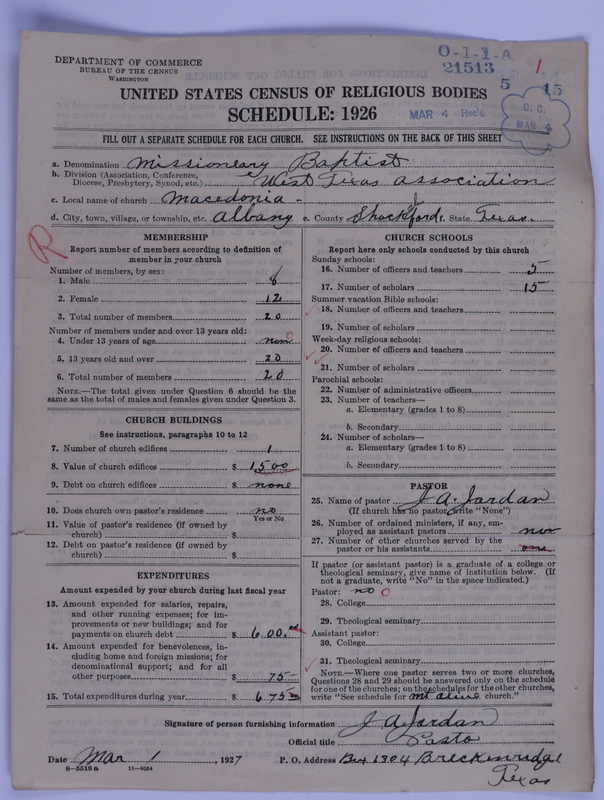 DEPARTMENT OF COMMERCE
BUREAU OF THE CENSUS
WASHINGTON
O-1-1-A
21513
1
5 15
UNITED STATES CENSUS OF RELIGIOUS BODIES
SCHEDULE: 1926
MAR 4 Rec'd
C. C.
MAR 4
FILL OUT A SEPARATE SCHEDULE FOR EACH CHURCH. SEE INSTRUCTIONS ON THE BACK OF THIS SHEET
a. Denomination Missioneary Baptist
b. Division (Association, Conference, Diocese, Presbytery, Synod, etc.) West Texas association
c. Local name of church Macedonia -
d. City, town, village, or township, etc. Albany e. County Shackelford f. State Texas.
R
MEMBERSHIP
Report number of members according to definition of
member in your church
Number of members, by sex:
1. Male 8
2. Female 12
3. Total number of members 20
Number of members under and over 13 years old:
4. Under 13 years of age non 0
5. 13 years old and over 20
6. Total number of members 20
NOTE.—The total given under Question 6 should be the
same as the total of males and females given under Question 3.
CHURCH BUILDINGS
See instructions, paragraphs 10 to 12
7. Number of church edifices 1
8. Value of church edifices $ 1500
9. Debt on church edifices $ none
10. Does church own pastor's residence no
Yes or No
11. Value of pastor's residence (if owned by
church) $
12. Debt on pastor's residence (if owned by
church) $
EXPENDITURES
Amount expended by your church during last fiscal year
13. Amount expended for salaries, repairs,
and other running expenses; for im-
provements or new buildings; and for
payments on church debt $ 600.
14. Amount expended for benevolences, in-
cluding home and foreign missions; for
denominational support; and for all
other purposes $ 75
15. Total expenditures during year $ 675
CHURCH SCHOOLS
Report here only schools conducted by this church
Sunday schools:
16. Number of officers and teachers 5
17. Number of scholars 15
Summer vacation Bible schools:
18. Number of officers and teachers
19. Number of scholars
Week-day religious schools:
20. Number of officers and teachers
21. Number of scholars
Parochial schools:
22. Number of administrative officers
23. Number of teachers—
a. Elementary (grades 1 to 8)
b. Secondary
24. Number of scholars—
a. Elementary (grades 1 to 8)
b. Secondary
PASTOR
25. Name of pastor J A. Jordan
(If church has no pastor, write "None")
26. Number of ordained ministers, if any, em-
ployed as assistant pastors non
27. Number of other churches served by the
pastor or his assistants one
If pastor (or assistant pastor) is a graduate of a college or
theological seminary, give name of institution below. (If
not a graduate, write "No" in the space indicated.)
Pastor: no 0
28. College
29. Theological seminary
Assistant pastor:
30. College
31. Theological seminary
NOTE.—Where one pastor serves two or more churches,
Questions 28 and 29 should be answered only on the schedule
for one of the churches; on the schedules for the other churches,
write "See schedule for mt olive church."
Signature of person furnishing information J A Jordan
Official title Pasto
Date Mar 1, 1927 P. O. Address Box 1304 Breckenridge
Texas
8—5518a 11—9054